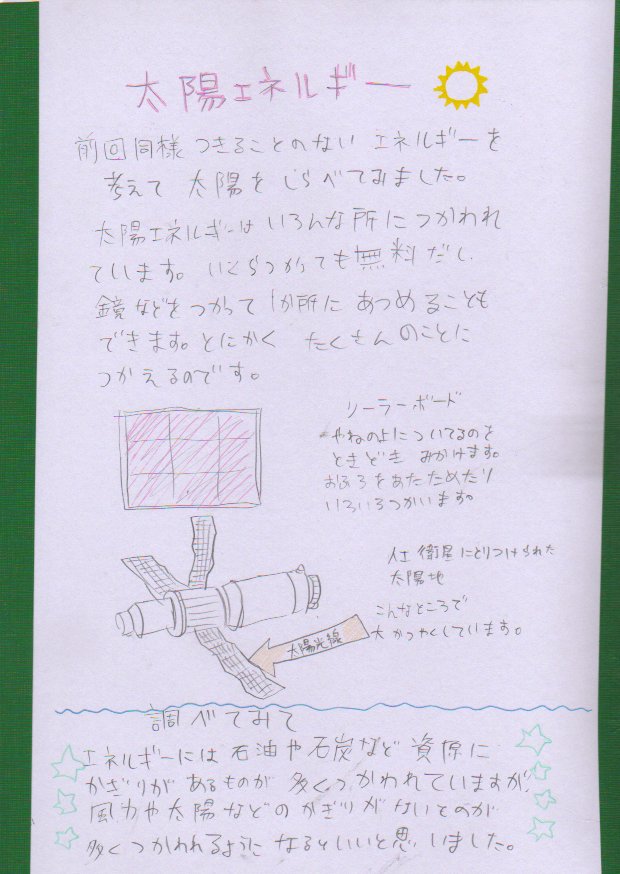 太陽エネルギー
前回同様つきることのないエネルギーを
考えて太陽をしらべてみました。
太陽エネルギーはいろんな所につかわれ
ています。いくらつかっても無料だし
鏡などをつかって1か所にあつめることも
できます。とにかくたくさんのことに
つかえるのです。
ソーラーボード
やねの上についてるのを
ときどきみかけます。
おふろをあたためたり
いろいろつかいます。
人工衛星にとりつけられた
太陽地
こんなところで
大かつやくしています。
太陽光線
調べてみて
エネルギーには石油や石炭など資原に
かぎりがあるものが多くつかわれていますが、
風力や太陽などのかぎりがないものが
多くつかわれるようになるといいと思いました。